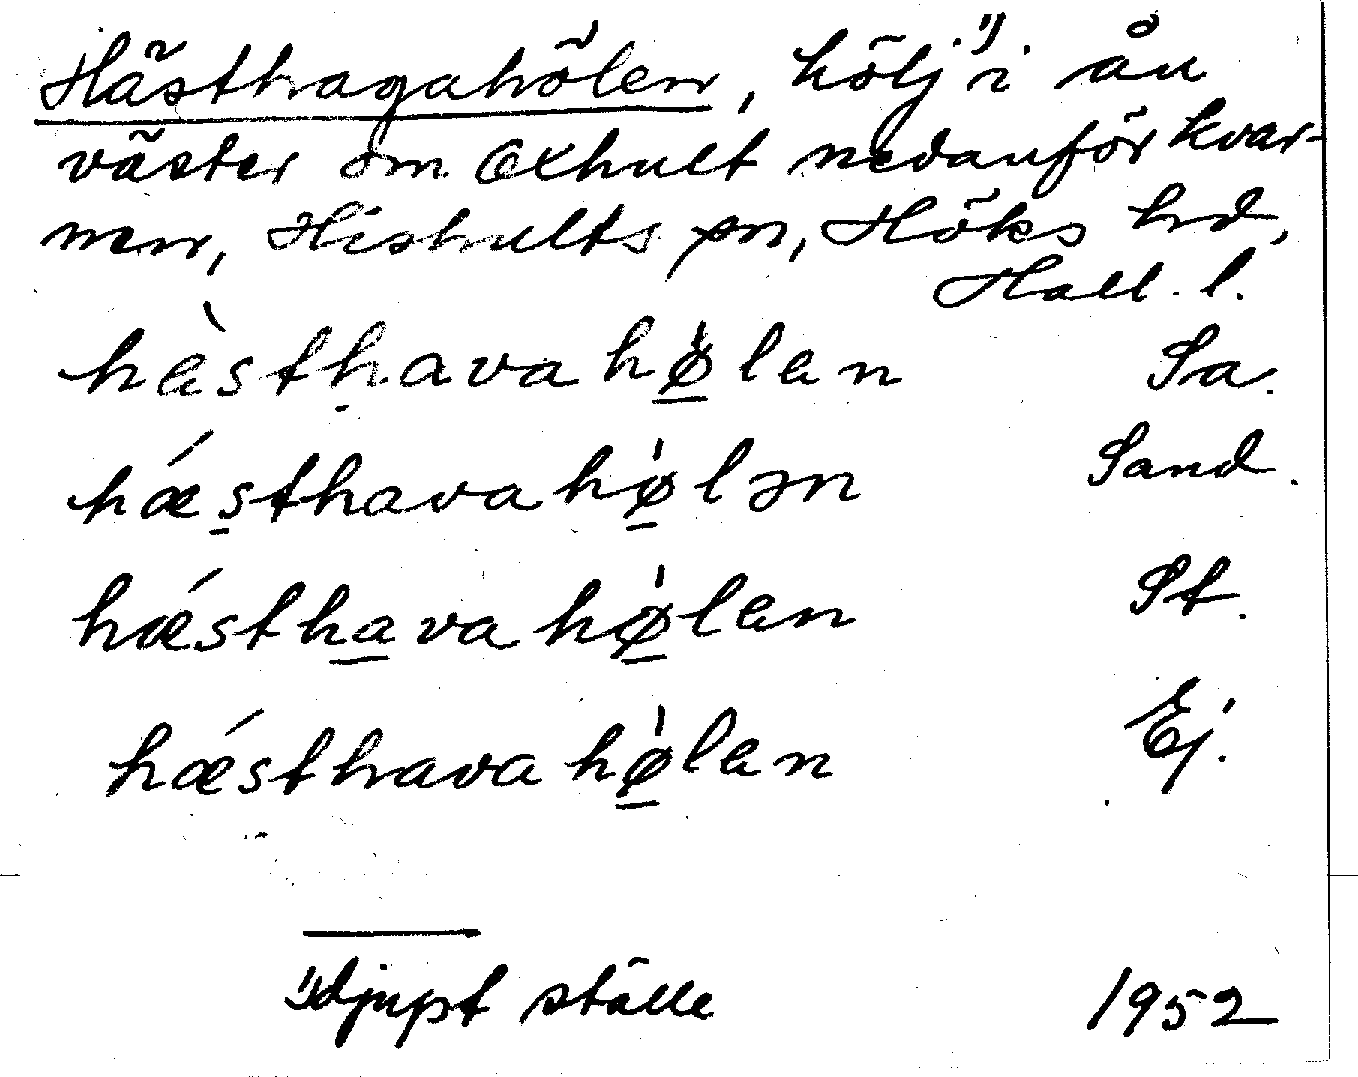 Hästhagahölen, hölj¹⁾ i ån
väster om Oxhult nedanför kvar-
nen, Hishults sn, Höks hd,
Hall. l.
hὲsthavahø̱̀len Sa.
hǽs̱thavahø̱̀lən Sand.
hǽstha̱vahø̱̀len St.
hǽsthavahø̱̀len Ej.
¹⁾djupt ställe 1952